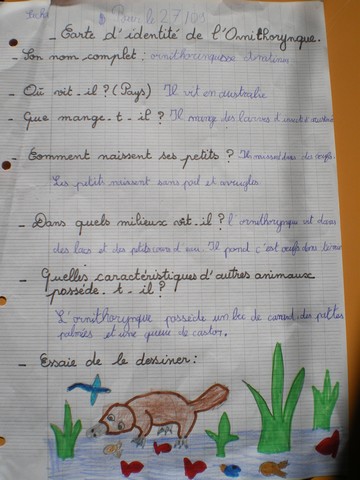 Pour le 27/09
- Carte d'identité de l'Ornithorynque.
- Son nom complet : ornithorinquesse
- Où vit-il ? (Pays) Il vit en australie
- Que mange-t-il ? Il mange des larves d'insectes
- Comment naissent ses petits ? Ils naissent dans des oeufs.
Les petits naissent sans poil et aveugles.
- Dans quels milieux vit-il ? l'ornithorynque vit dans
des lacs et des petits cours d'eau. Il pond c'est oeufs dans
- Quelles caractéristiques d'autres animaux
possède-t-il ?
L'ornithorynque possède un bec de canard, des pattes
palmées et une queue de castor.
- Essaie de le dessiner :